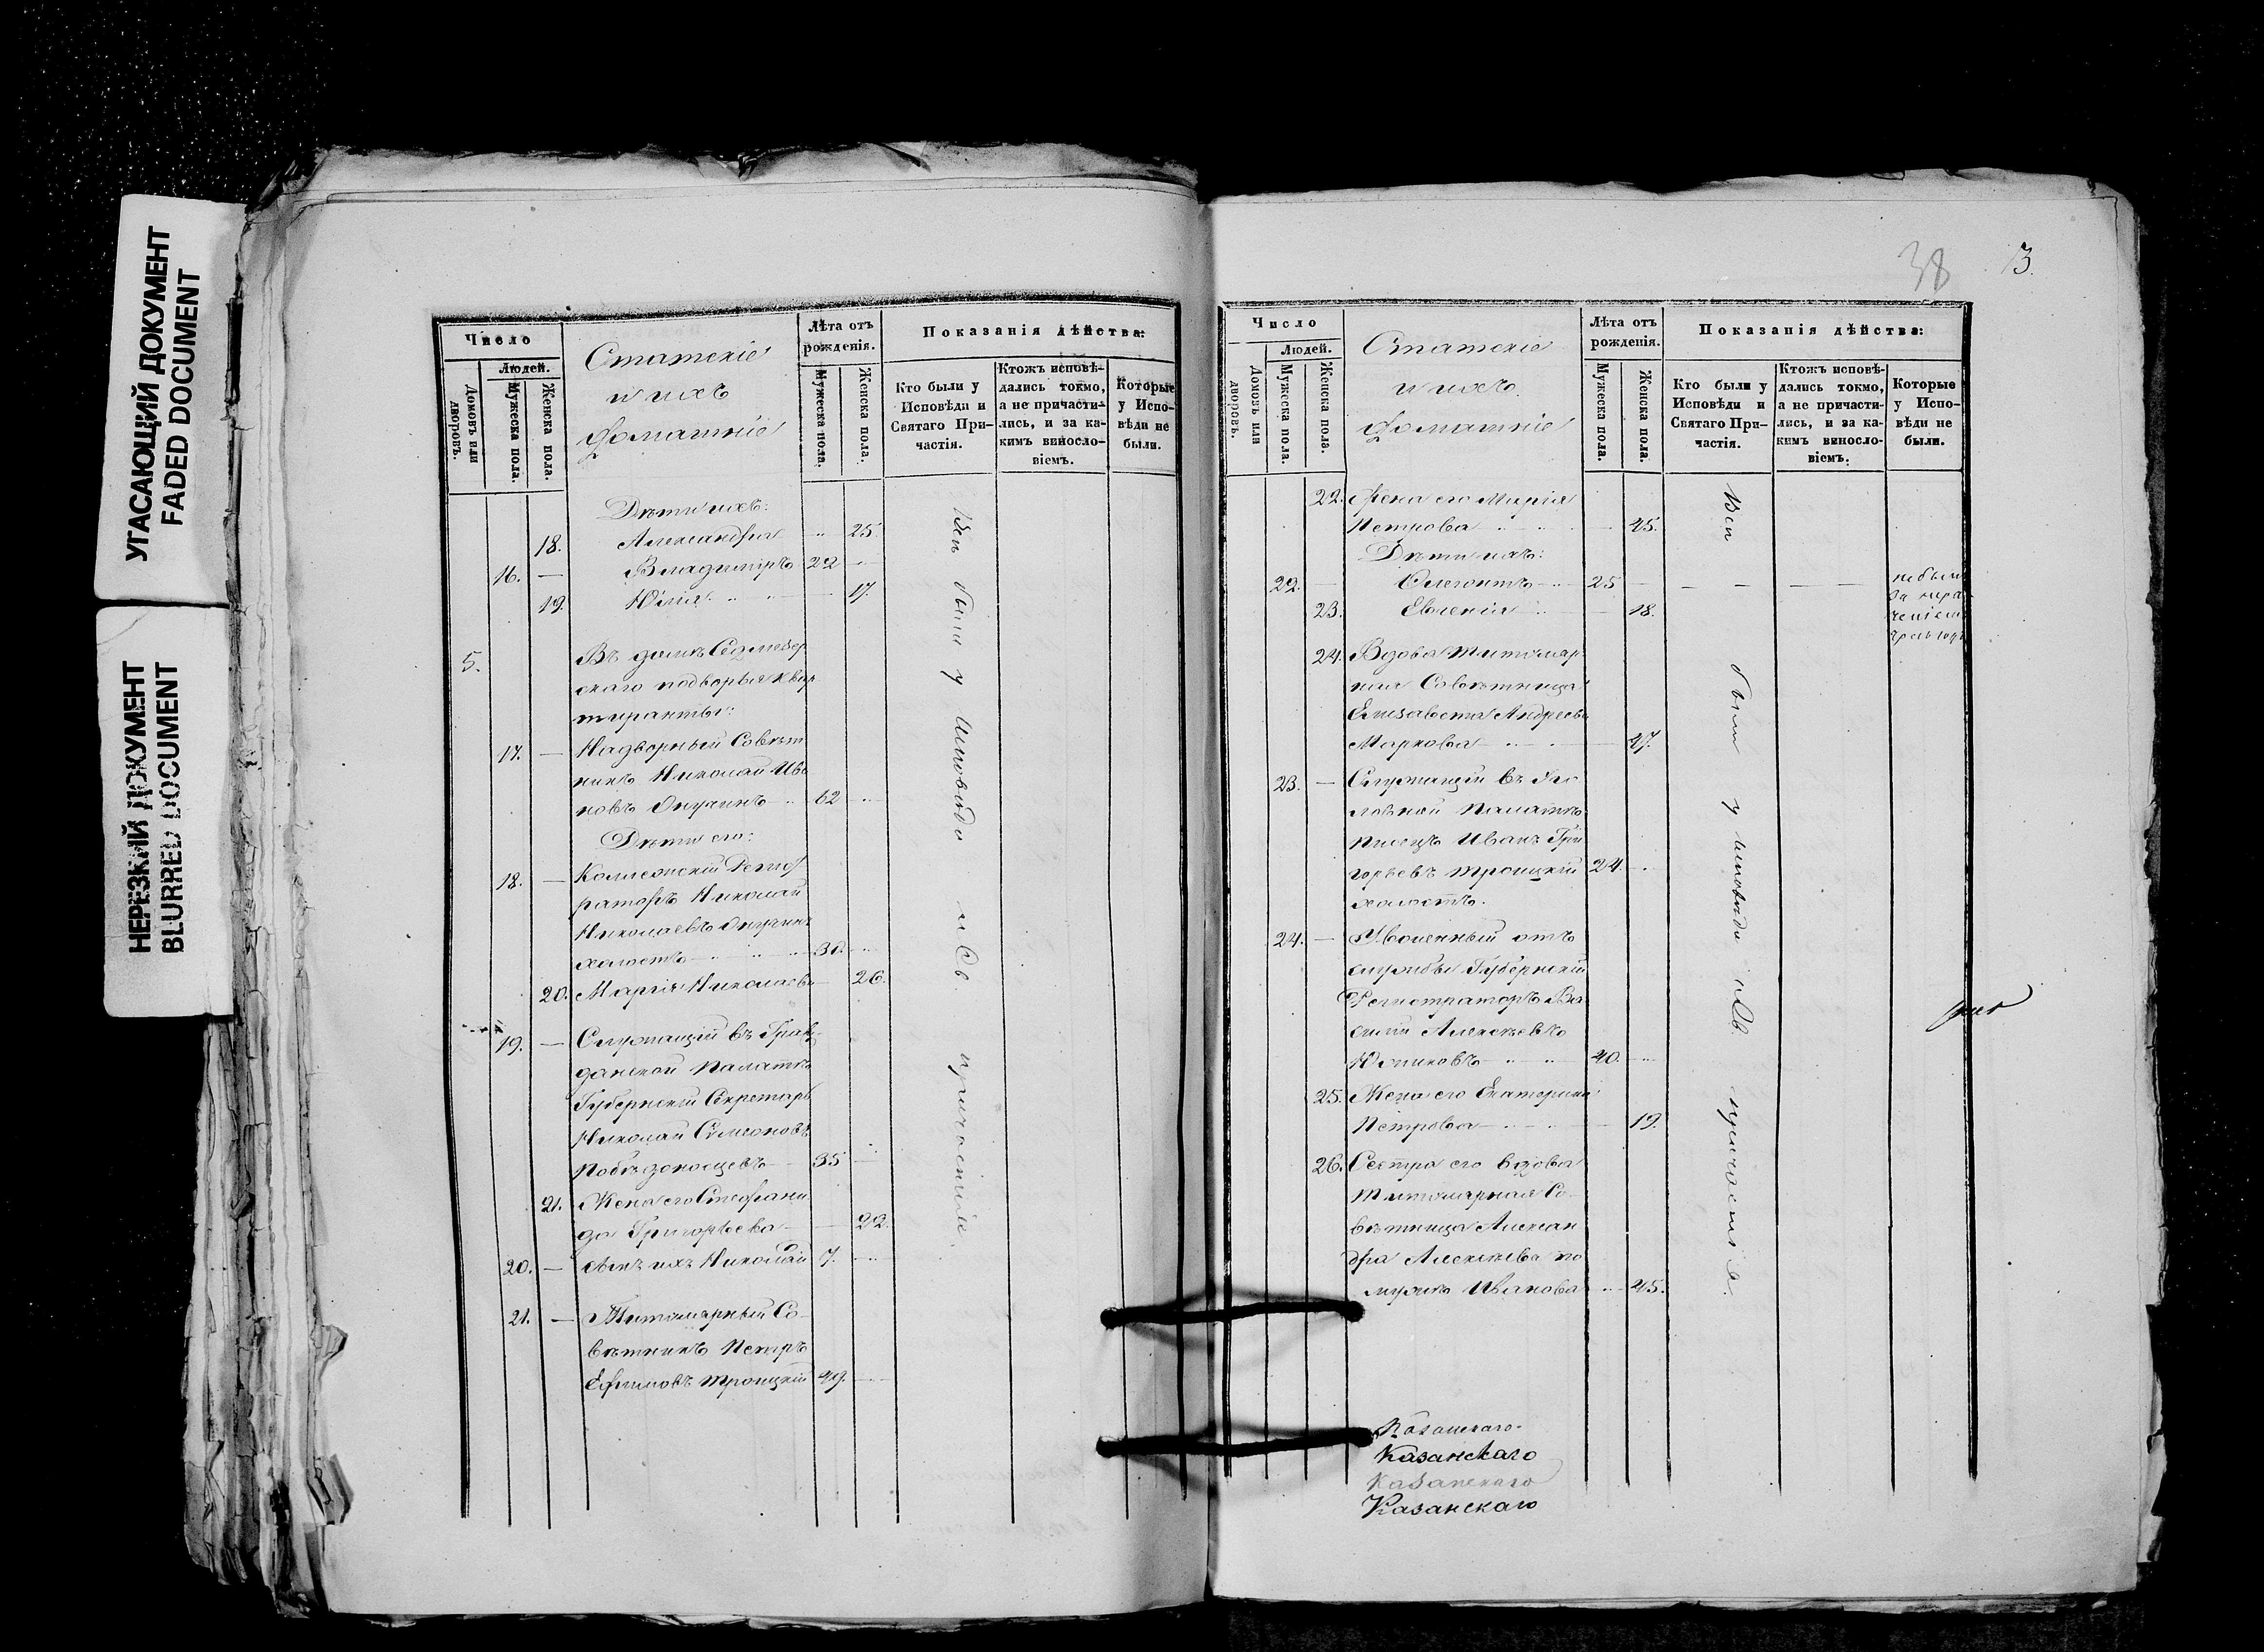 УГАСАЮЩИЙ ДОКУМЕНТ
FADED DOCUMENT
НЕРЕЗКИЙ ДОКУМЕНТ
BLURRED DOCUMENT
Число
Людей.
Домовъ или дворовъ.
Мужеска пола.
Женска пола.
Статскіе
и ихъ
домашніе
Лѣта отъ рожденія.
Мужеска пола.
Женска пола.
Показанія дѣйства:
Кто были у Исповѣди и Святаго Причастія.
Ктожъ исповѣдались токмо, а не причастились, и за какимъ винословіемъ.
Которые у Исповѣди не были.
Дѣти ихъ:
18. Александра 25
16. — Владиміръ 22
19. Юлія 17.
5. Въ домѣ Седміезер
скаго подворья квар
тиранты:
17. — Надворный Совѣт
никъ Николай Ива
новъ 62
Дѣти его:
18. — Коллежскій Регист
раторъ Николай
Николаевъ
холостъ 30.
20. Марія Николаева 26.
19. — Служащій въ Граж
данской Палатѣ
Губернскій Секретарь
Николай Симеоновъ
Побѣдоносцевъ 35
21. Жена его Стефани
да Григорьева 22.
20. — Сынъ ихъ Николай 7.
21. — Титулярный Со
вѣтникъ Петръ
Ефимовъ Троицкій 49.
Всѣ были у исповѣди и Св. причастія.
38 3.
Число
Людей.
Домовъ или дворовъ.
Мужеска пола.
Женска пола.
Статскіе
и ихъ
домашніе
Лѣта отъ рожденія.
Мужеска пола.
Женска пола.
Показанія дѣйства:
Кто были у Исповѣди и Святаго Причастія.
Ктожъ исповѣдались токмо, а не причастились, и за какимъ винословіемъ.
Которые у Исповѣди не были.
22. Жена его Марія
Петрова 45.
Дѣти ихъ:
22. — Флегонтъ 25 — — — не былъ
23. Евгенія 18.
24. Вдова Титуляр
ная Совѣтница
Елизавета Андреева
Маркова 47.
23. — Служащій въ Уго
ловной Палатѣ
писецъ Иванъ Гри
горьевъ Троицкій 24.
холостъ.
24. — Уволенный отъ
службы Губернскій
Регистраторъ Ва
силій Алексѣевъ
40.
25. Жена его Екатерина
Петрова 19.
26. Сестра его вдова
Титулярная Со
вѣтница Алексан
дра Алексѣева по
мужѣ Иванова 45.
Всѣ были у исповѣди и Св. причастія.
Казанскаго
Казанскаго
Казанскаго
Казанскаго